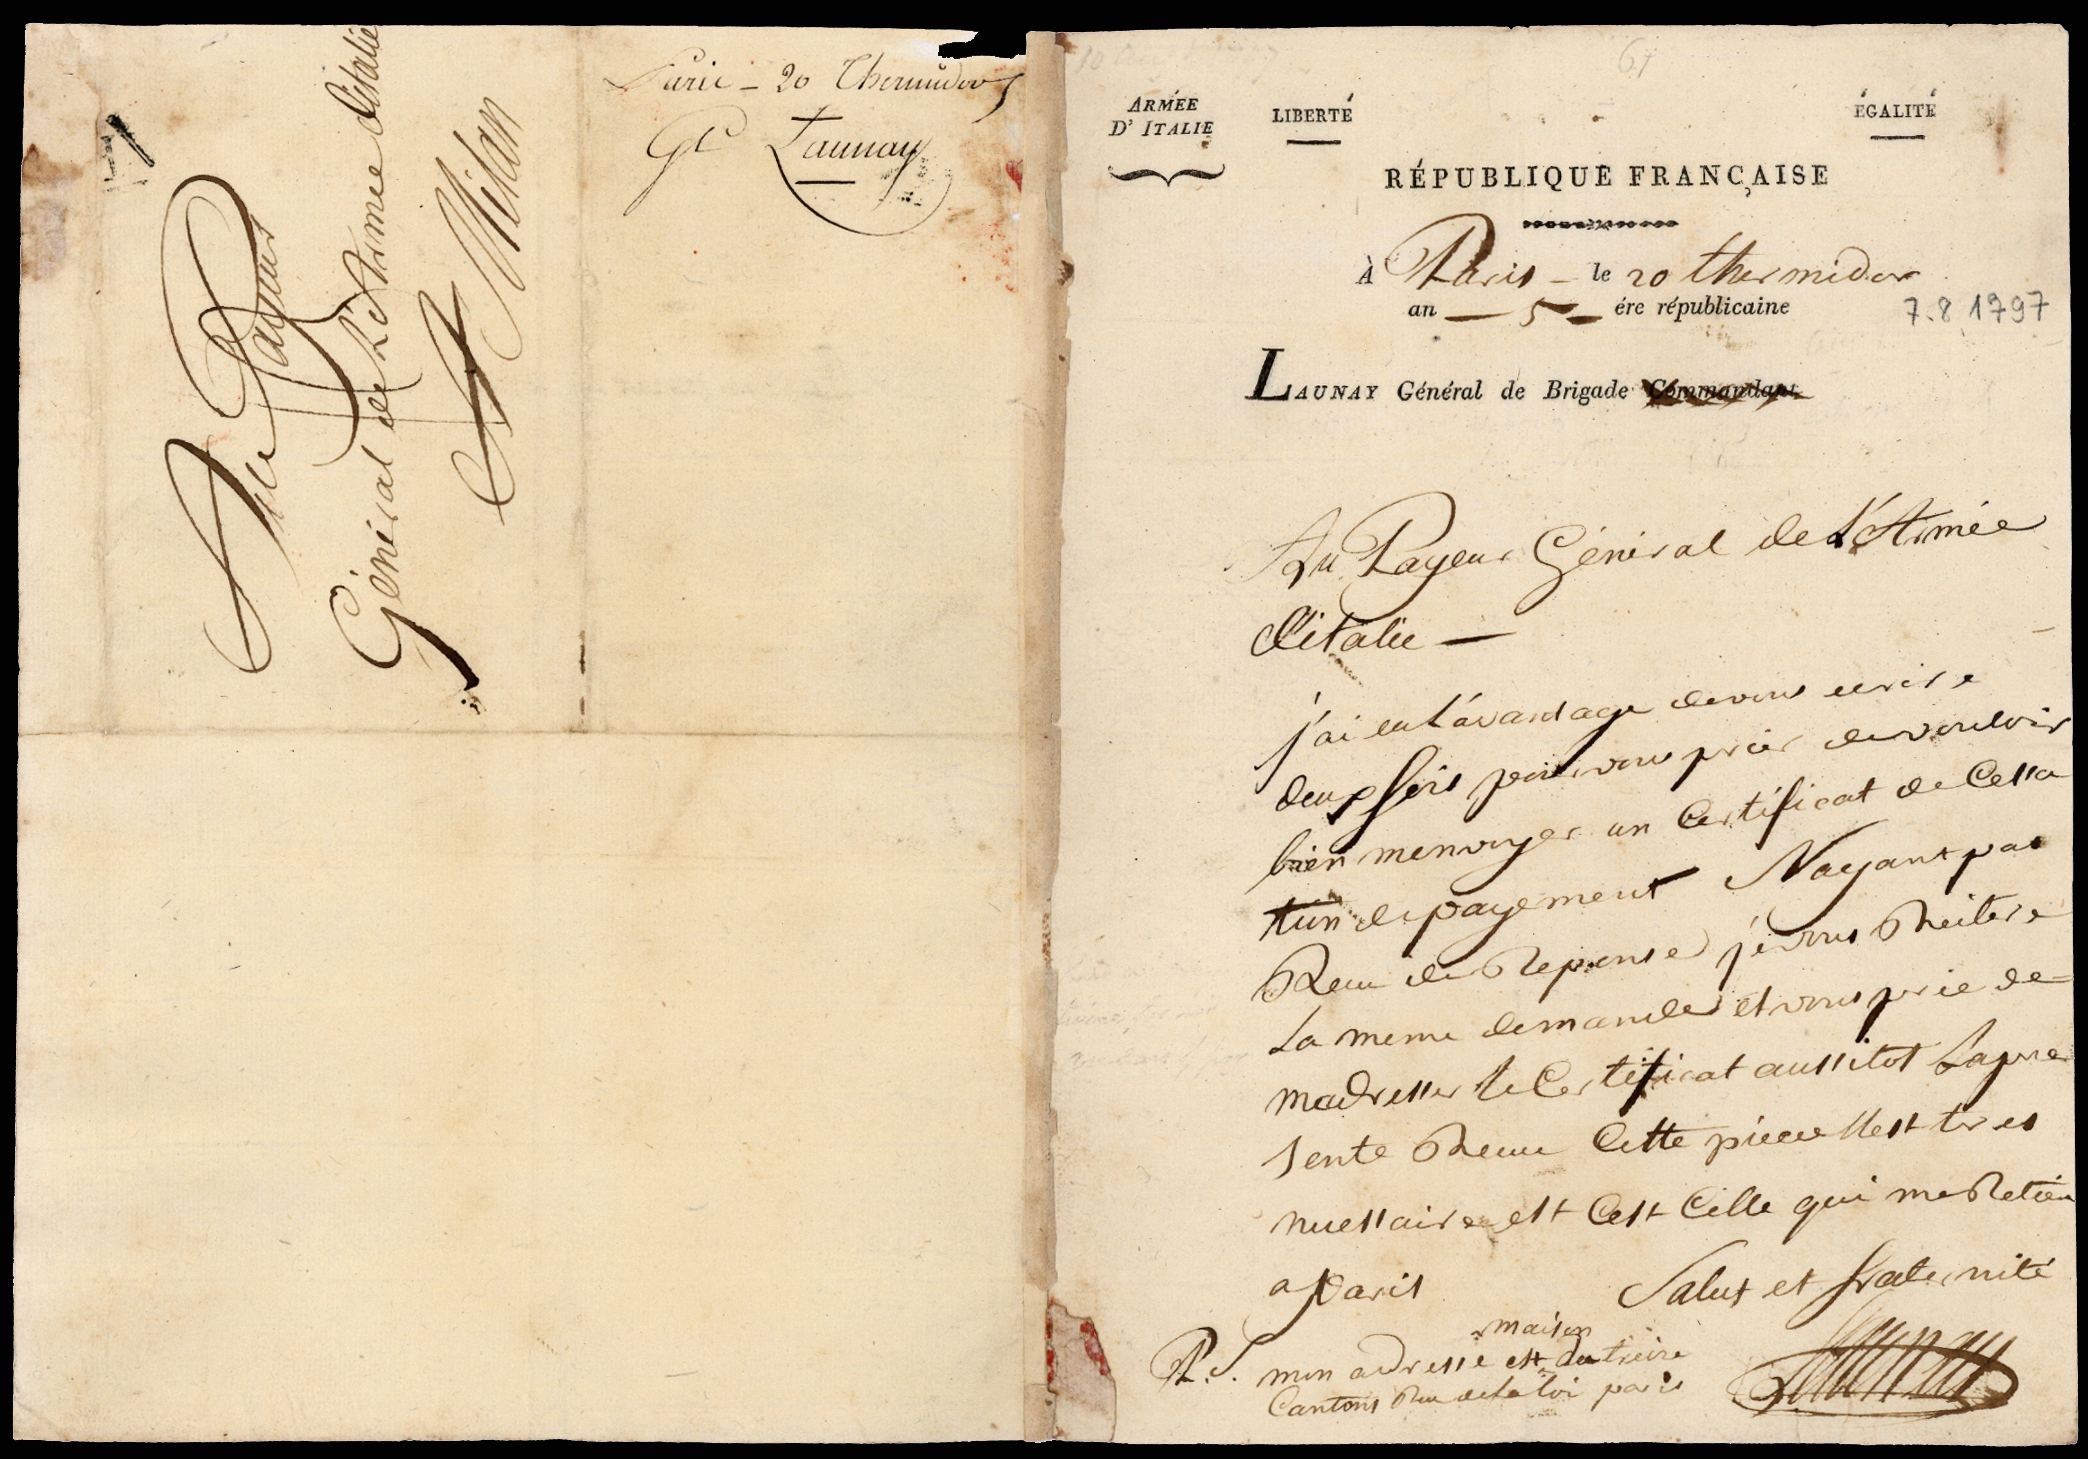 Au Payeur
Général de L'Armée d'italie
A Milan
Paris - 20 Thermidor 5
Gl Launay
61
ARMÉE
D' ITALIE
LIBERTÉ
ÉGALITÉ
RÉPUBLIQUE FRANÇAISE
À Paris - le 20 thermidor
an - 5 - ére républicaine
7.8.1797
LAUNAY Général de Brigade Commandant
Au Payeur Général de L'Armée
d'italie —
j'ai eu L'avantage de vous ecrire
deux fois pour vous prier de vouloir
bien menvoyer un Certificat de Cessa
tion de payement Nayant pas
Recu de Reponse je vous Reitere
La meme demande et vous prie de
madresser le Certificat aussitot Lapre
sente Recue Cette piece Mest tres
nuessaire est Cest Celle qui me Retien
a paris Salut et fraternité
Launay
P.S. mon adresse est maison du treize
Cantons Rue de la loi paris